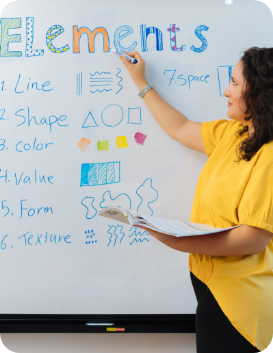 Elements
1. Line
2. Shape
3. Color
4. Value
5. Form
6. Texture
7. Space